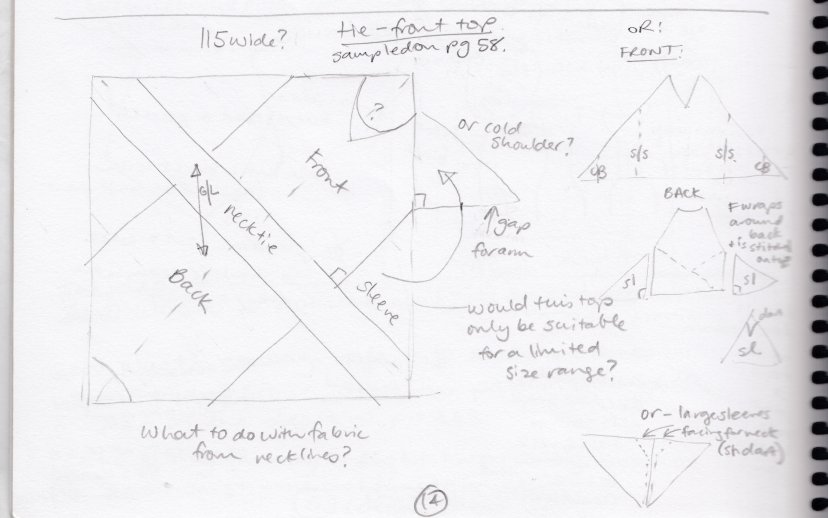 115 wide?
tie-front top
sampled on pg 58.
OR:
FRONT:
?
or cold
shoulder?
Front
s/s
s/s
CB
CB
G/L
necktie
BACK
F wraps
around
back
+ is stitched
onto
gap
for arm
Back
sleeve
sl
sl
would this top
only be suitable
for a limited
size range?
sl
What to do with fabric
from necklines?
or - large sleeves
facing for neck
14